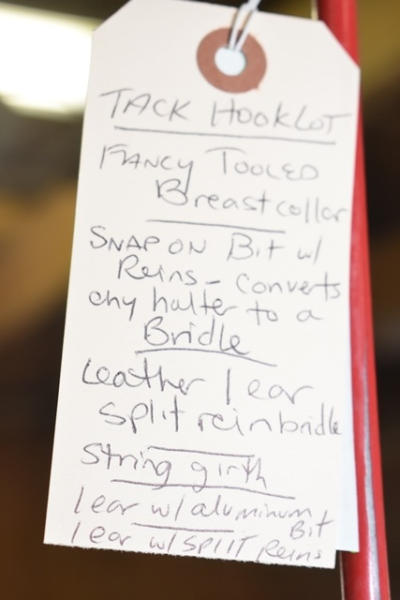 TACK HOOK LOT
FANCY TOOLED
Breastcollar
SNAP ON Bit w/
Reins - converts
any halter to a
Bridle
Leather 1 ear
split rein bridle
String girth
1 ear w/ aluminum
Bit
1 ear w/ SPlIT Reins